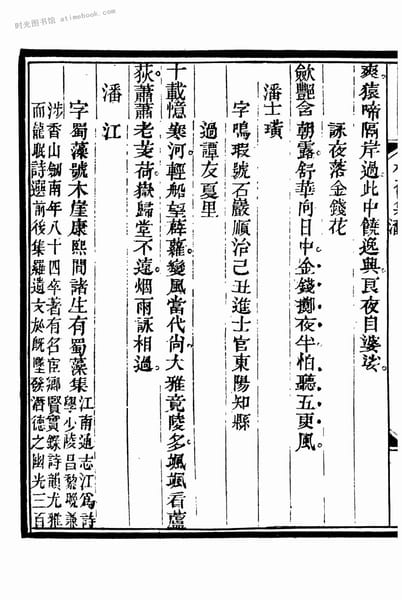 时光图书馆 atimebook.com
爽猿啼隔岸過此中饒逸興良夜自婆娑
詠夜落金錢花
歛艷含朝露舒華向日中金錢擲夜半怕聽五更風
潘士璜
字鳴瑕號石嚴順治己丑進士官東陽知縣
過譚友夏里
十載憶寒河輕船望薜蘿變風當代尙大雅竟陵多颯颯看蘆
荻蕭蕭老芰荷嶽歸堂不遠烟雨詠相過
潘江
字蜀藻號木崖康熙間諸生有蜀藻集
江南通志江爲詩
學少陵昌黎暖兼
涉香山劍南年八十四卒著有名宦鄉賢實蝶詩韻尤雅
而龍眠詩選前後集羅遺文於旣墜發潛德之國光三百